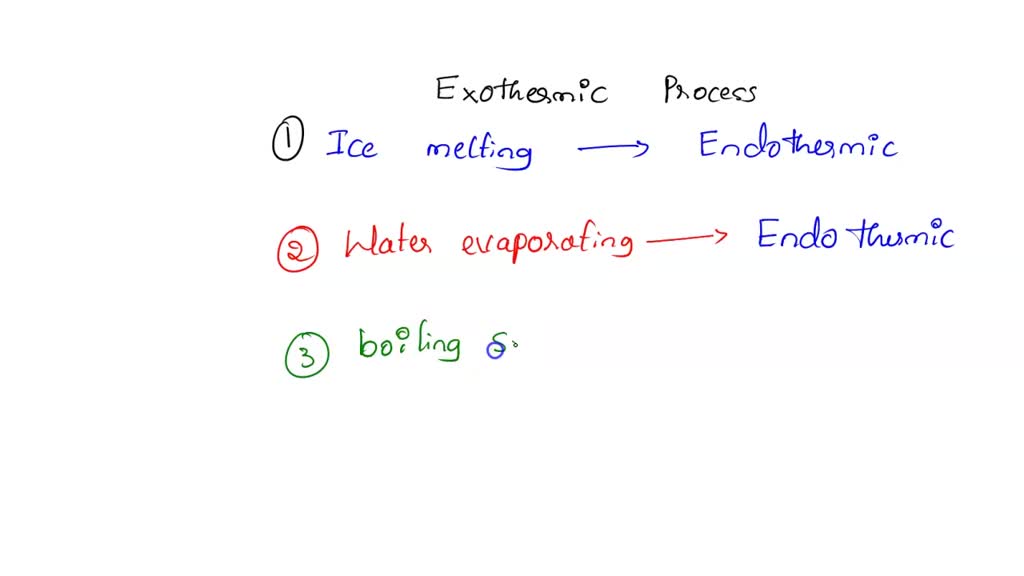 Exothermic Process
① Ice melting → Endothermic
② Water evaporating → Endothermic
③ boiling s